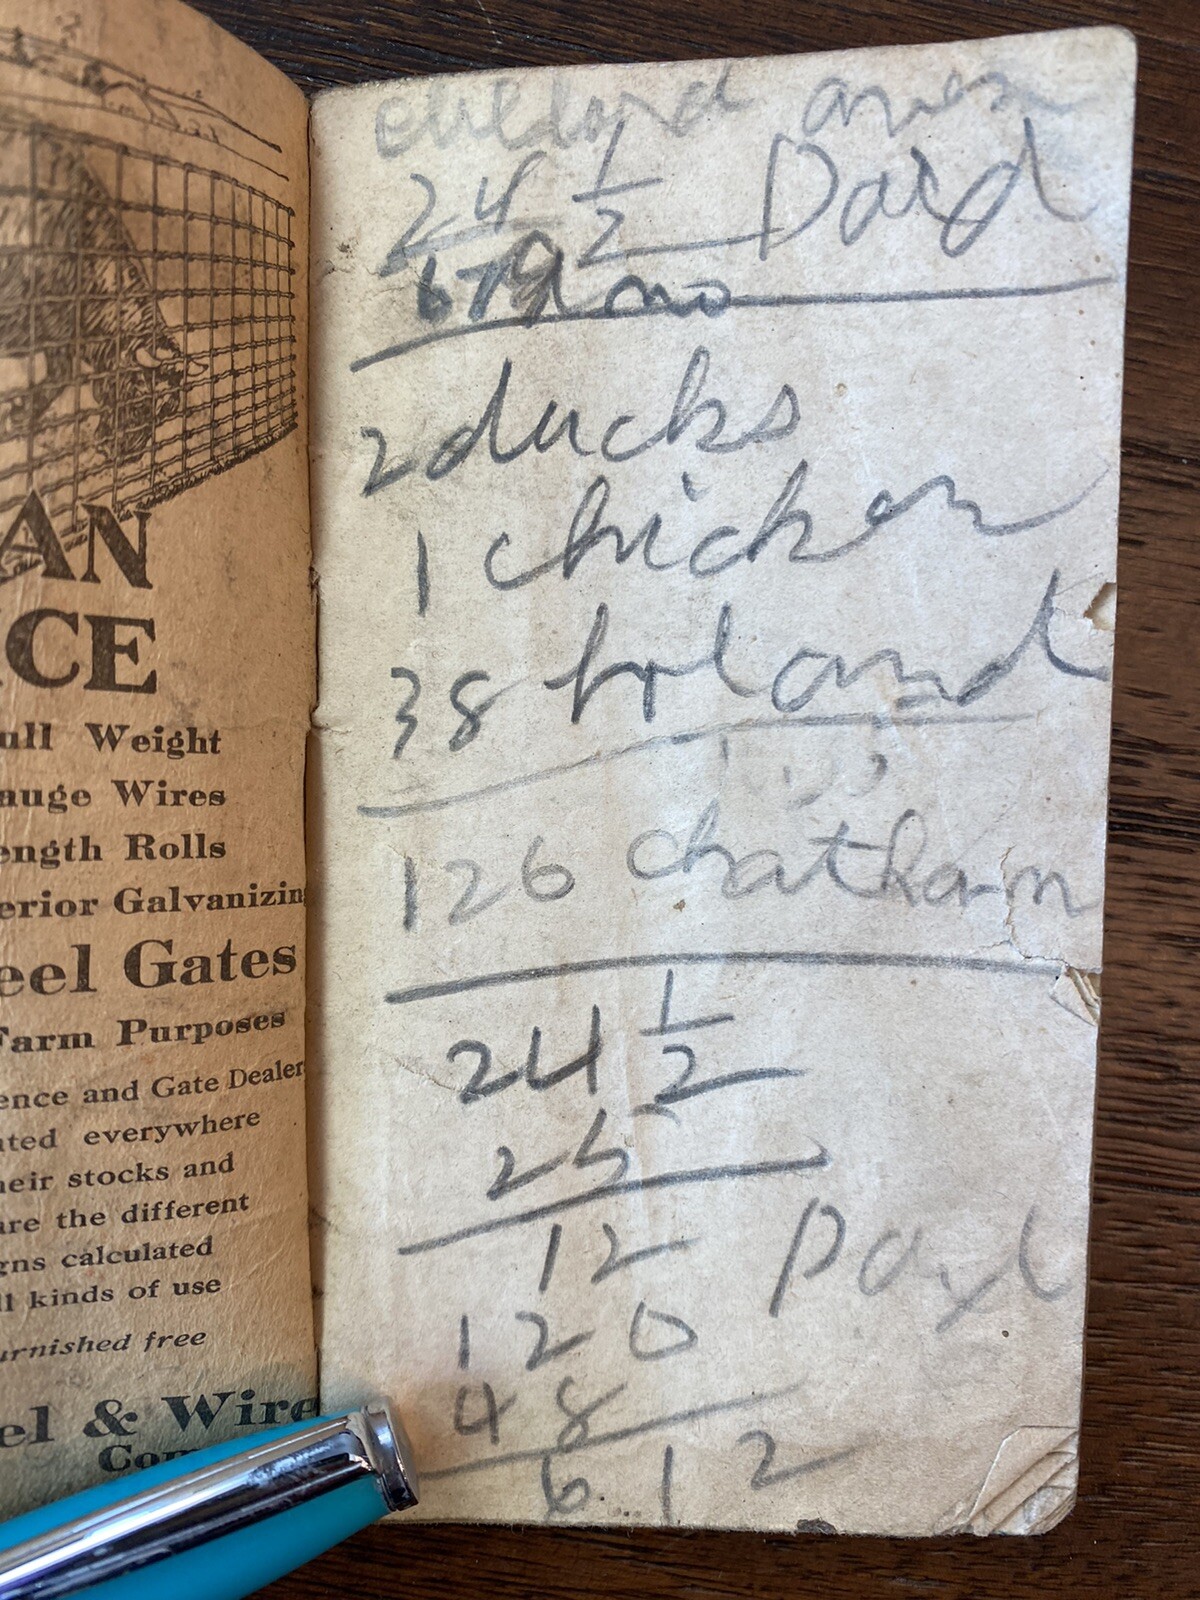 AN
CE
ull Weight
auge Wires
ength Rolls
erior Galvanizin
eel Gates
Farm Purposes
ence and Gate Dealer
ated everywhere
heir stocks and
are the different
gns calculated
ll kinds of use
urnished free
el & Wire
Com
24 1/2 Paid
2 ducks
1 chicken
38 holand
126 chatham
24 1/2
25
12 Paid
120
48
612